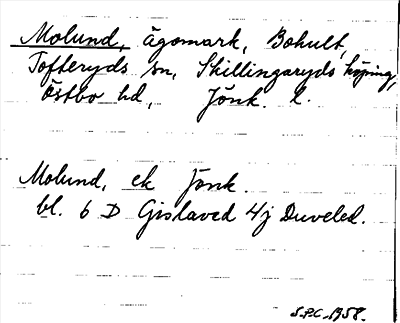 Molund, ägomark, Bohult,
Tofteryds sn, Skillingaryds köping,
Östbo hd, Jönk. l.
Molund, ek Jönk.
bl. 6 D Gislaved 4j Duveled.
S.P.C. 1958.